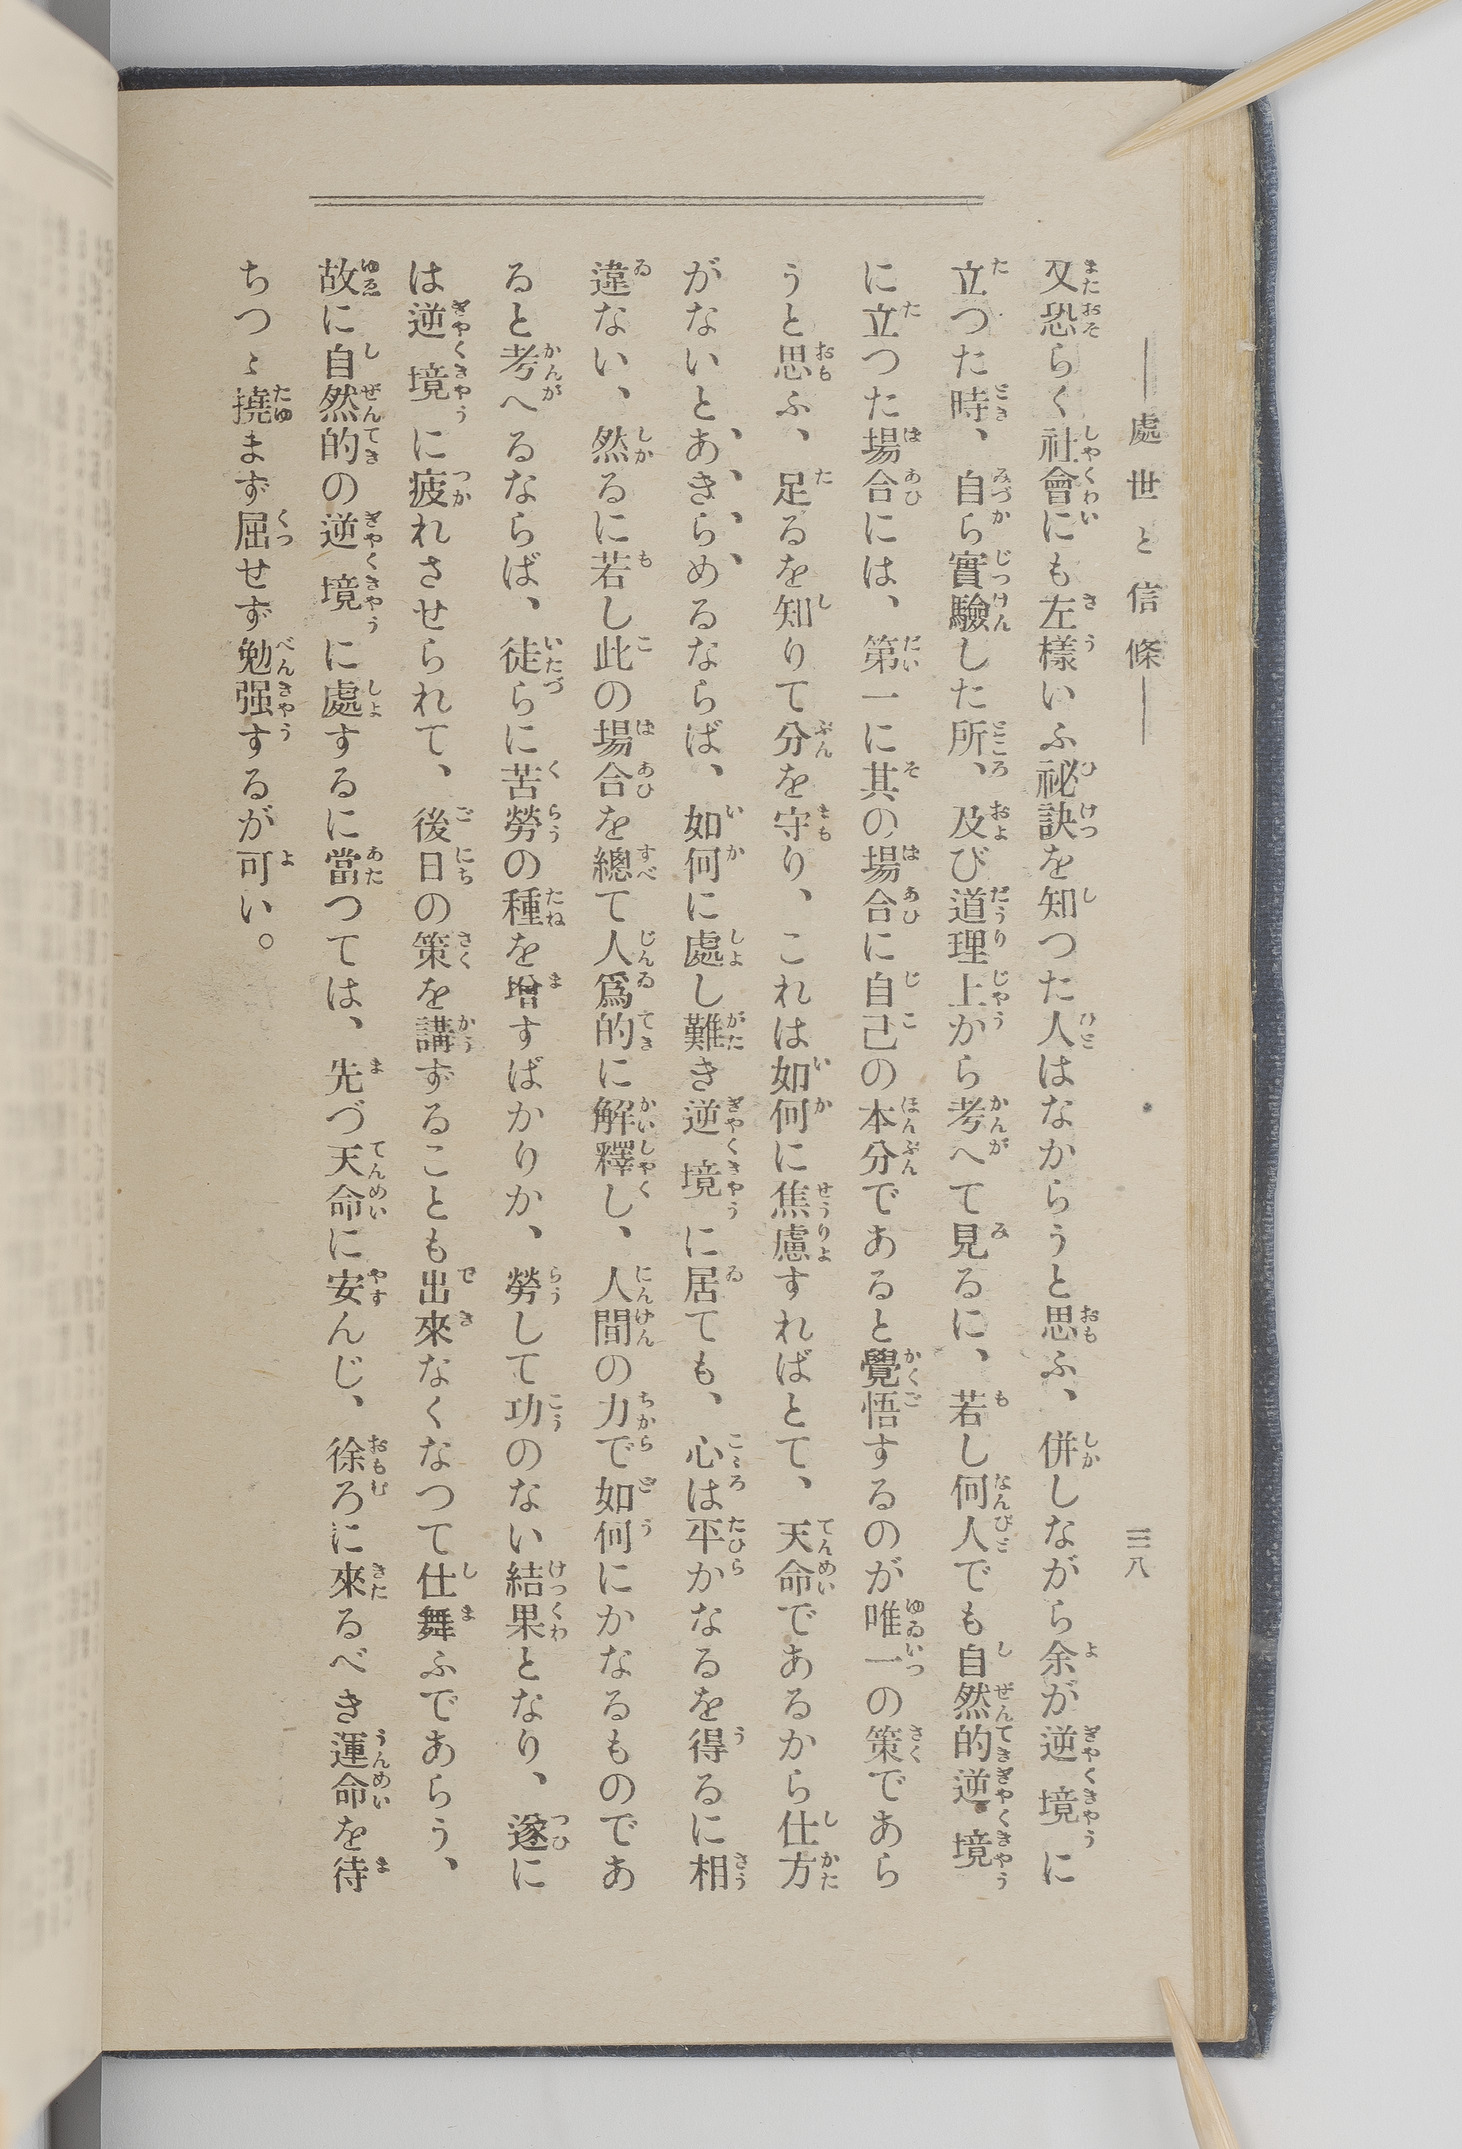 處世と信條
三八
又恐らく社會にも左樣いふ祕訣を知つた人はなからうと思ふ、併しながら余が逆境に
立つた時、自ら實驗した所、及び道理上から考へて見るに、若し何人でも自然的逆境
に立つた場合には、第一に其の場合に自己の本分であると覺悟するのが唯一の策であら
うと思ふ、足るを知りて分を守り、これは如何に焦慮すればとて、天命であるから仕方
がないとあきらめるならば、如何に處し難き逆境に居ても、心は平かなるを得るに相
違ない、然るに若し此の場合を總て人爲的に解釋し、人間の力で如何にかなるものであ
ると考へるならば、徒らに苦勞の種を增すばかりか、勞して功のない結果となり、遂に
は逆境に疲れさせられて、後日の策を講ずることも出來なくなつて仕舞ふであらう、
故に自然的の逆境に處するに當つては、先づ天命に安んじ、徐ろに來るべき運命を待
ちつゝ撓まず屈せず勉强するが可い。